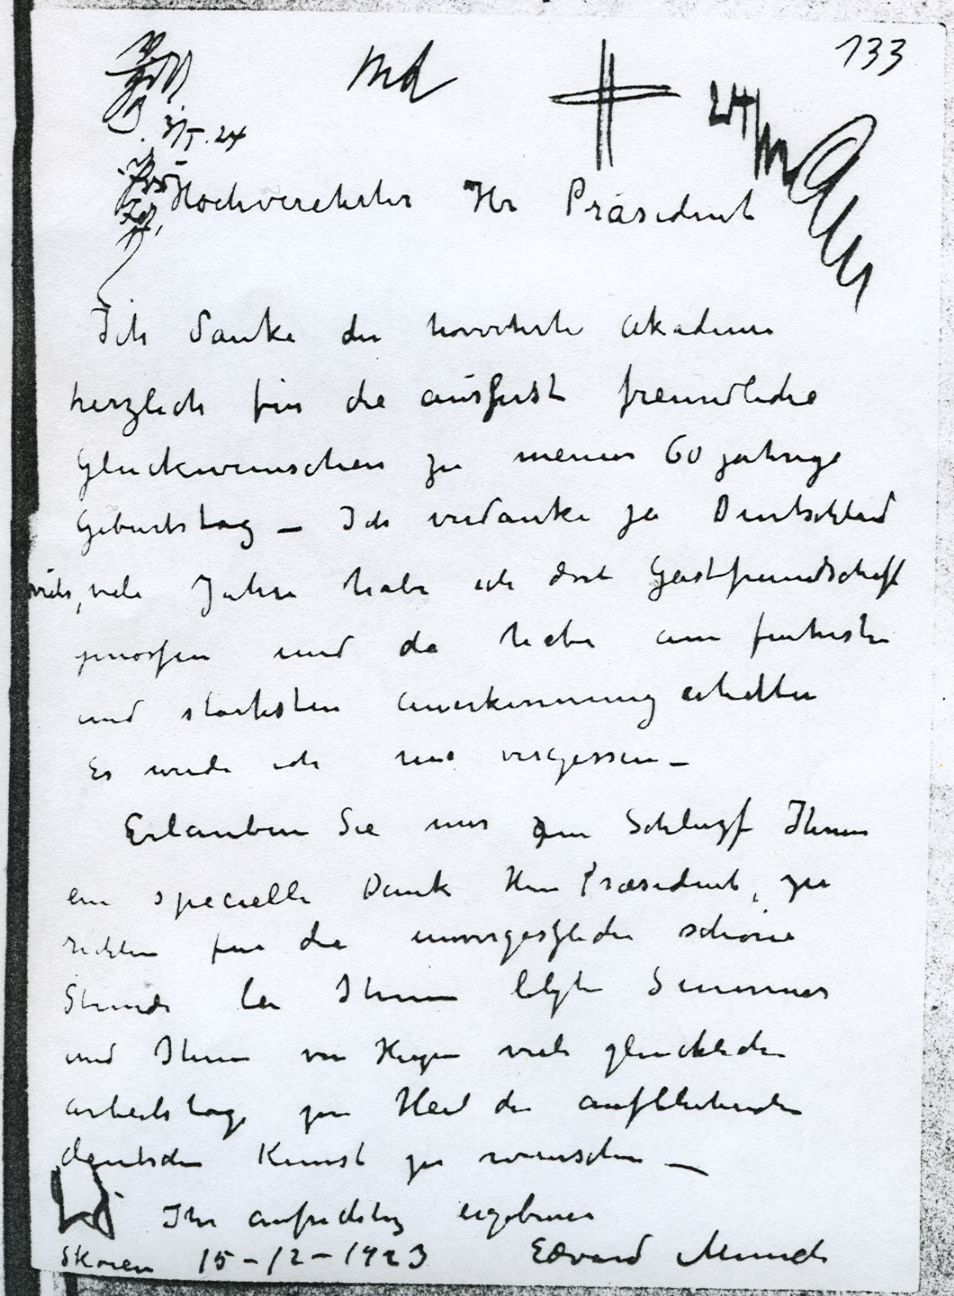 133
3/5.24
24/12
Hochverehrter Hr Präsident
Ich danke der akademie
herzlich für die freundliche
Gluckwunschen zu meiner 60 jahrige
Geburtstag – Ich verdanke ja Deutschland
viele, viele Jahre habe ich dort Gastfreundschaft
und da habe am
und starksten anerkennung erhalten
Es werde ich nie vergessen –
Erlauben Sie mir zum Schluß Ihnen
ein specielle Dank Herr Præsident, zu
richten fur die schöne
Stunde bei Ihnen letzte Summer
und Ihnen von viele gluckliche
arbeitstage zur Heil der aufbluhende
deutsche Kunst zu wunschen –
Ihr aufrichtig ergebener
Skøien 15-12-1923 Edvard Munch